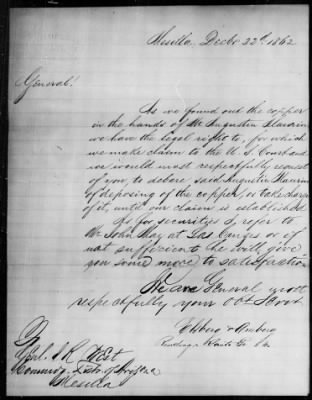 Mesilla, Decbr 22d. 1862
General!
As we found out the copper
in the hands of Mr Augustin
we have the legal right to, for which
we make claim to the U. S. Court and
we would most respectfully request
of you to debare said Augustin
of disposing of the copper or take charge
of it, until our claim is established
As for securities, refer to
Mr John May at Las Cruces or if
not sufficient he will give
you some more to satisfaction
We are General most
respectfully your Obt Servt
Elsberg & Amberg
To
Genl. J R West
Commdg. Distr of Arizona
Mesilla